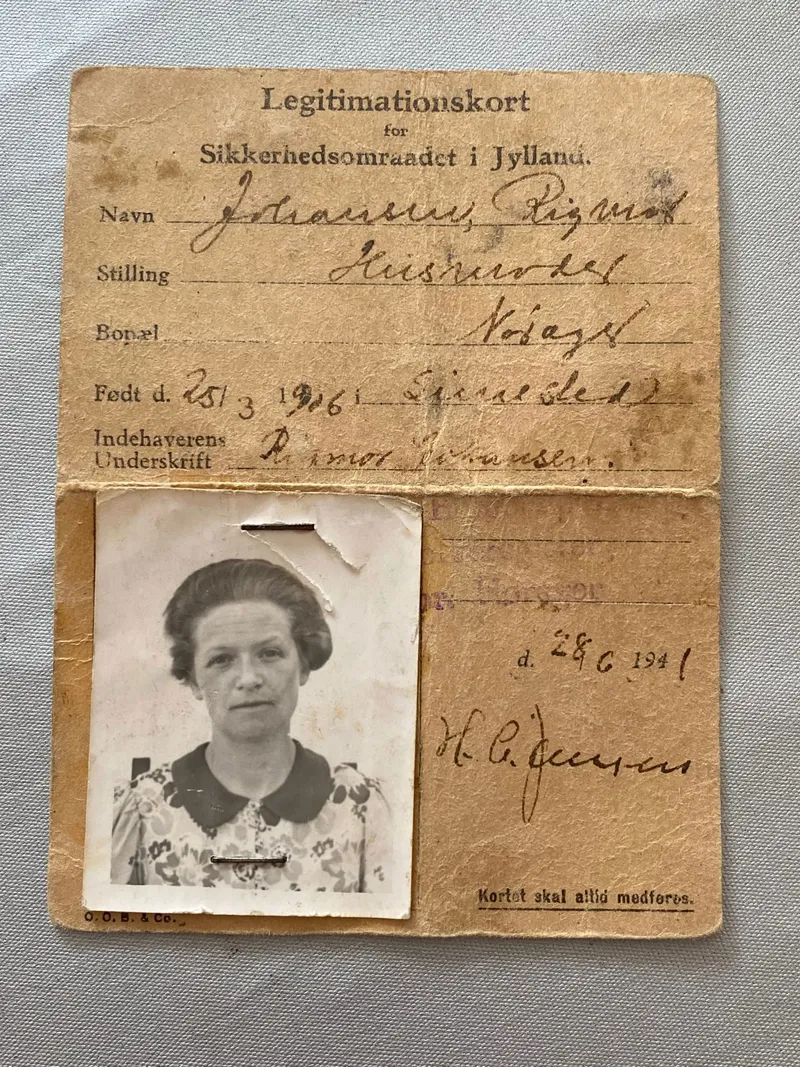 Legitimationskort
for
Sikkerhedsomraadet i Jylland.
Navn Johansen, Rigmor
Stilling Husmoder
Bopæl Nørager
Født d. 25/3 1906 i Simested
Indehaverens
Underskrift Rigmor Johansen.
d. 28/6 1941
H. C. Jensen
Kortet skal altid medføres.
O. O. B. & Co.